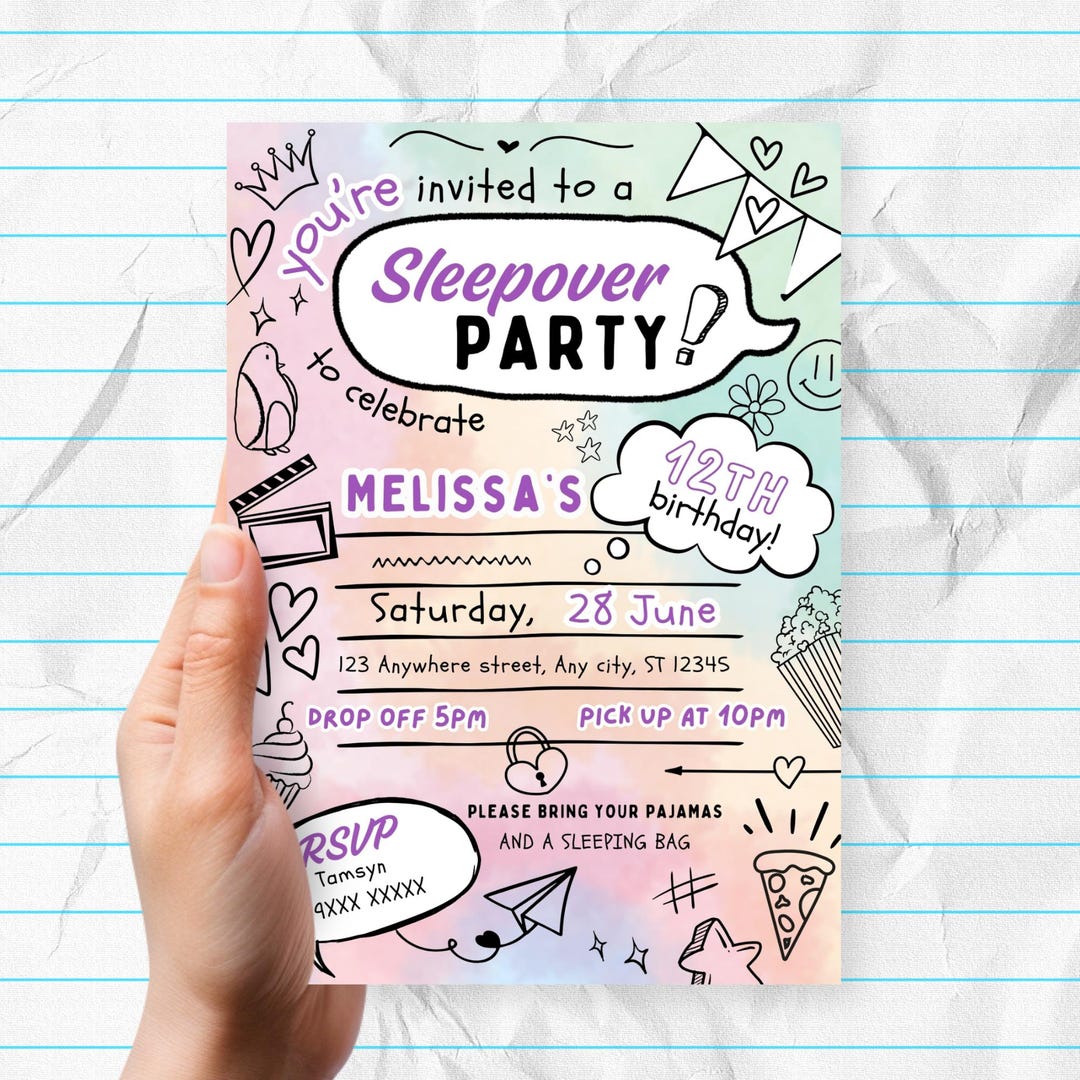 you're invited to a
Sleepover
PARTY!
to celebrate
MELISSA'S
12TH
birthday!
Saturday, 28 June
123 Anywhere street, Any city, ST 12345
DROP OFF 5PM
PICK UP AT 10PM
PLEASE BRING YOUR PAJAMAS
AND A SLEEPING BAG
RSVP
Tamsyn
9XXX XXXXX
#